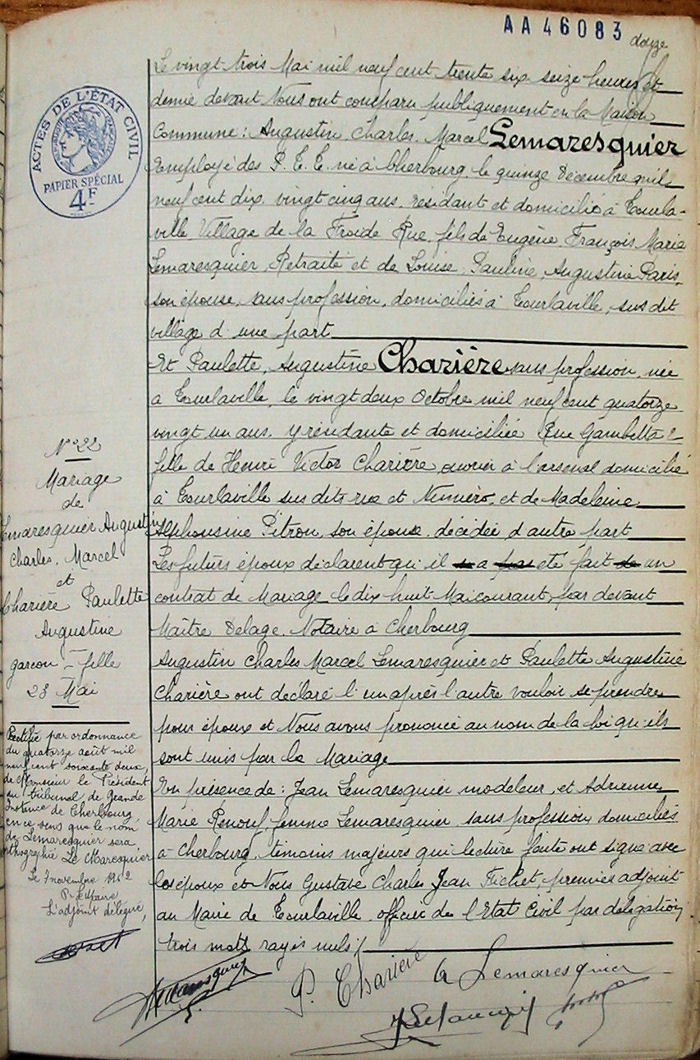 AA46083
douze
ACTES DE L'ÉTAT CIVIL
PAPIER SPÉCIAL
4F
Le vingt trois Mai mil neuf cent trente six seize heures et
demie devant Nous ont comparu publiquement en la Maison
Commune : Augustin, Charles, Marcel Lemaresquier
Employé des P.T.T. né à Cherbourg le quinze Décembre mil
neuf cent dix, vingt cinq ans, résidant et domicilié à Tourla-
ville Village de la Froide Rue, fils de Eugène, François, Marie
Lemaresquier, Retraité et de Louise, Pauline, Augustine Paris,
son épouse, sans profession, domiciliés à Tourlaville, sus dit
village d'une part
Et Paulette, Augustine Charière sans profession, née
à Tourlaville, le vingt deux Octobre mil neuf cent quatorze
vingt un ans, y résidante et domiciliée Rue Gambetta 2
fille de Henri Victor Charière, ouvrier à l'arsenal domicilié
à Tourlaville sus dits rue et Numéro, et de Madeleine
Alphonsine Pitron, son épouse, décédée d'autre part
Les futurs époux déclarent qu'il a été fait un
contrat de Mariage le dix huit Mai courant, par devant
Maître Delage, Notaire à Cherbourg
Augustin Charles Marcel Lemaresquier et Paulette Augustine
Charière ont déclaré l'un après l'autre vouloir se prendre
pour époux et Nous avons prononcé au nom de la loi qu'ils
sont unis par le Mariage
En présence de : Jean Lemaresquier modeleur, et Adrienne
Marie Renouf, femme Lemaresquier sans profession, domiciliés
à Cherbourg, témoins majeurs qui lecture faite ont signé avec
les époux et Nous Gustave Charles Jean Fichet, premier adjoint
au Maire de Tourlaville, officier de l'Etat Civil par délégation,
trois mots rayés nuls
P. Charière
A Lemaresquier
N° 22
Mariage
de
Lemaresquier Augustin
Charles, Marcel
et
Charière Paulette
Augustine
garçon - fille
23 Mai
Rectifié par ordonnance
du quatorze août mil
neuf cent soixante deux
de Monsieur le Président
du tribunal de Grande
Instance de Cherbourg
en ce sens que le nom
de Lemaresquier sera
orthographié Le Maresquier
Le 7 novembre 1962
L'adjoint délégué,